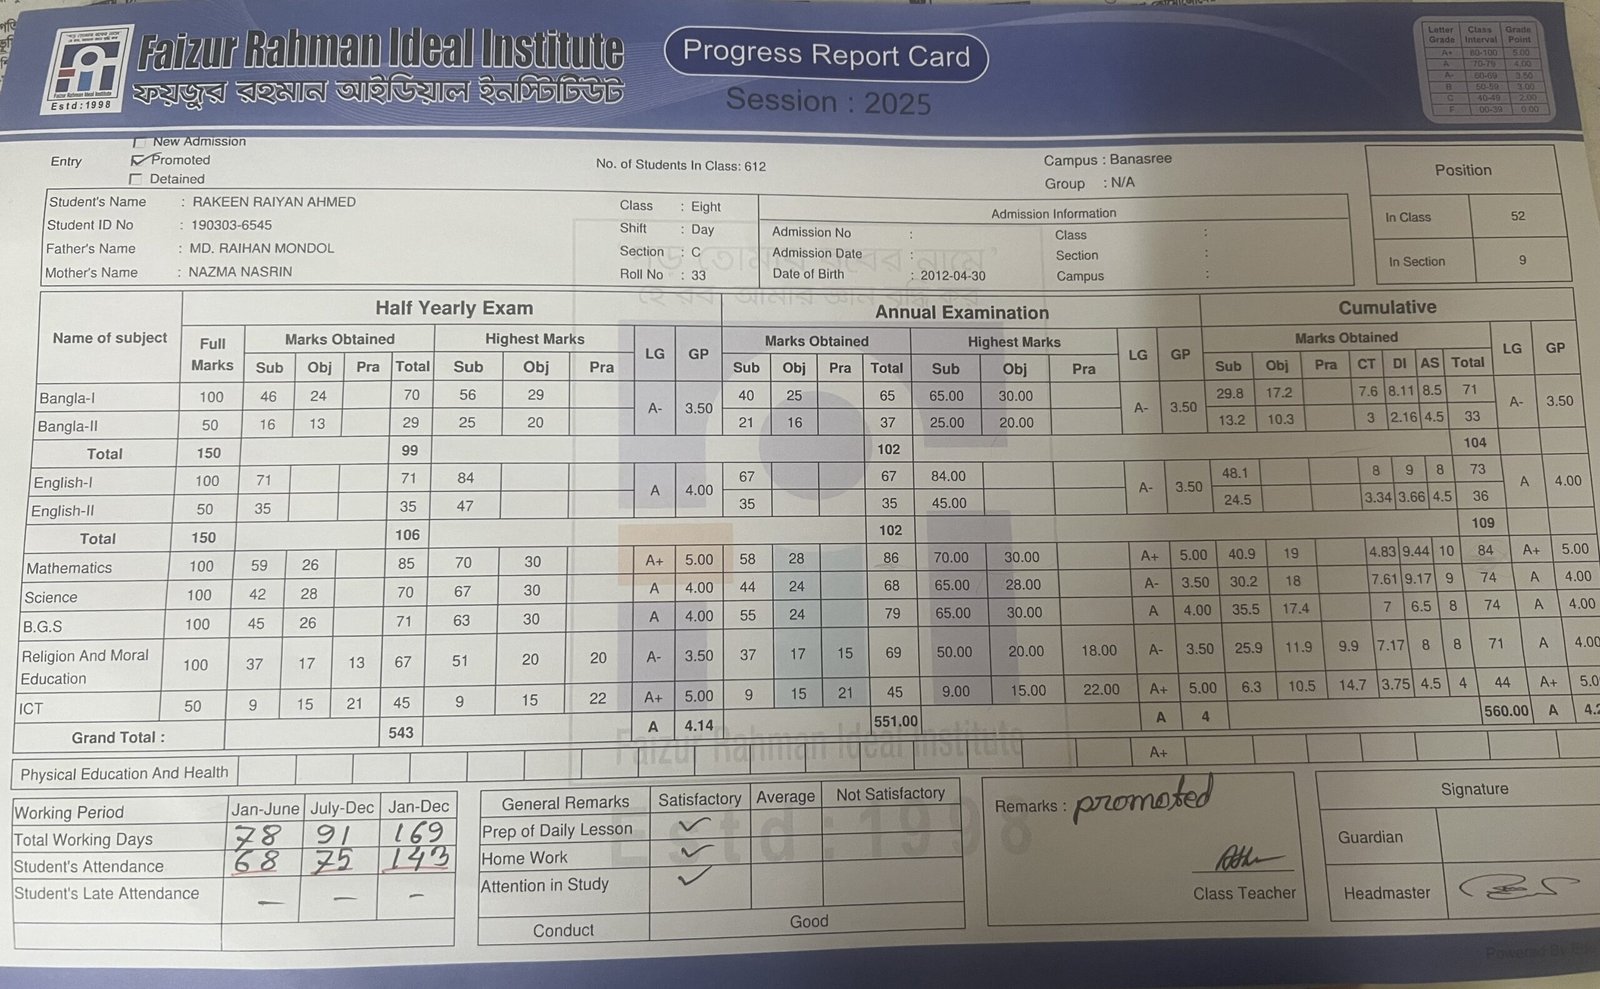 Faizur Rahman Ideal Institute
ফয়জুর রহমান আইডিয়াল ইনস্টিটিউট
Faizur Rahman Ideal Institute
Estd:1998
Progress Report Card
Session : 2025
Letter Grade Class Interval Grade Point
A+ 80-100 5.00
A 70-79 4.00
A- 60-69 3.50
B 50-59 3.00
C 40-49 2.00
F 00-39 0.00
Entry
New Admission
Promoted
Detained
No. of Students In Class: 612
Campus : Banasree
Group : N/A
Position
In Class 52
In Section 9
Student's Name : RAKEEN RAIYAN AHMED
Student ID No : 190303-6545
Father's Name : MD. RAIHAN MONDOL
Mother's Name : NAZMA NASRIN
Class : Eight
Shift : Day
Section : C
Roll No : 33
Admission Information
Admission No :
Admission Date :
Date of Birth : 2012-04-30
Class :
Section :
Campus :
Name of subject Half Yearly Exam Annual Examination Cumulative
Full Marks Marks Obtained Highest Marks LG GP Marks Obtained Highest Marks LG GP Marks Obtained LG GP
Sub Obj Pra Total Sub Obj Pra Sub Obj Pra Total Sub Obj Pra Sub Obj Pra CT DI AS Total
Bangla-I 100 46 24 70 56 29 A- 3.50 40 25 65 65.00 30.00 A- 3.50 29.8 17.2 7.6 8.11 8.5 71 A- 3.50
Bangla-II 50 16 13 29 25 20 21 16 37 25.00 20.00 13.2 10.3 3 2.16 4.5 33
Total 150 99 102 104
English-I 100 71 71 84 A 4.00 67 67 84.00 A- 3.50 48.1 8 9 8 73 A 4.00
English-II 50 35 35 47 35 35 45.00 24.5 3.34 3.66 4.5 36
Total 150 106 102 109
Mathematics 100 59 26 85 70 30 A+ 5.00 58 28 86 70.00 30.00 A+ 5.00 40.9 19 4.83 9.44 10 84 A+ 5.00
Science 100 42 28 70 67 30 A 4.00 44 24 68 65.00 28.00 A- 3.50 30.2 18 7.61 9.17 9 74 A 4.00
B.G.S 100 45 26 71 63 30 A 4.00 55 24 79 65.00 30.00 A 4.00 35.5 17.4 7 6.5 8 74 A 4.00
Religion And Moral Education 100 37 17 13 67 51 20 20 A- 3.50 37 17 15 69 50.00 20.00 18.00 A- 3.50 25.9 11.9 9.9 7.17 8 8 71 A 4.00
ICT 50 9 15 21 45 9 15 22 A+ 5.00 9 15 21 45 9.00 15.00 22.00 A+ 5.00 6.3 10.5 14.7 3.75 4.5 4 44 A+ 5.0
Grand Total : 543 A 4.14 551.00 A 4 560.00 A 4.2
Physical Education And Health A+
Faizur Rahman Ideal Institute
Estd : 1998
Working Period Jan-June July-Dec Jan-Dec
Total Working Days 78 91 169
Student's Attendance 68 75 143
Student's Late Attendance — — —
General Remarks Satisfactory Average Not Satisfactory
Prep of Daily Lesson
Home Work
Attention in Study
Conduct Good
Remarks : promoted
Class Teacher
Signature
Guardian
Headmaster
Powered By